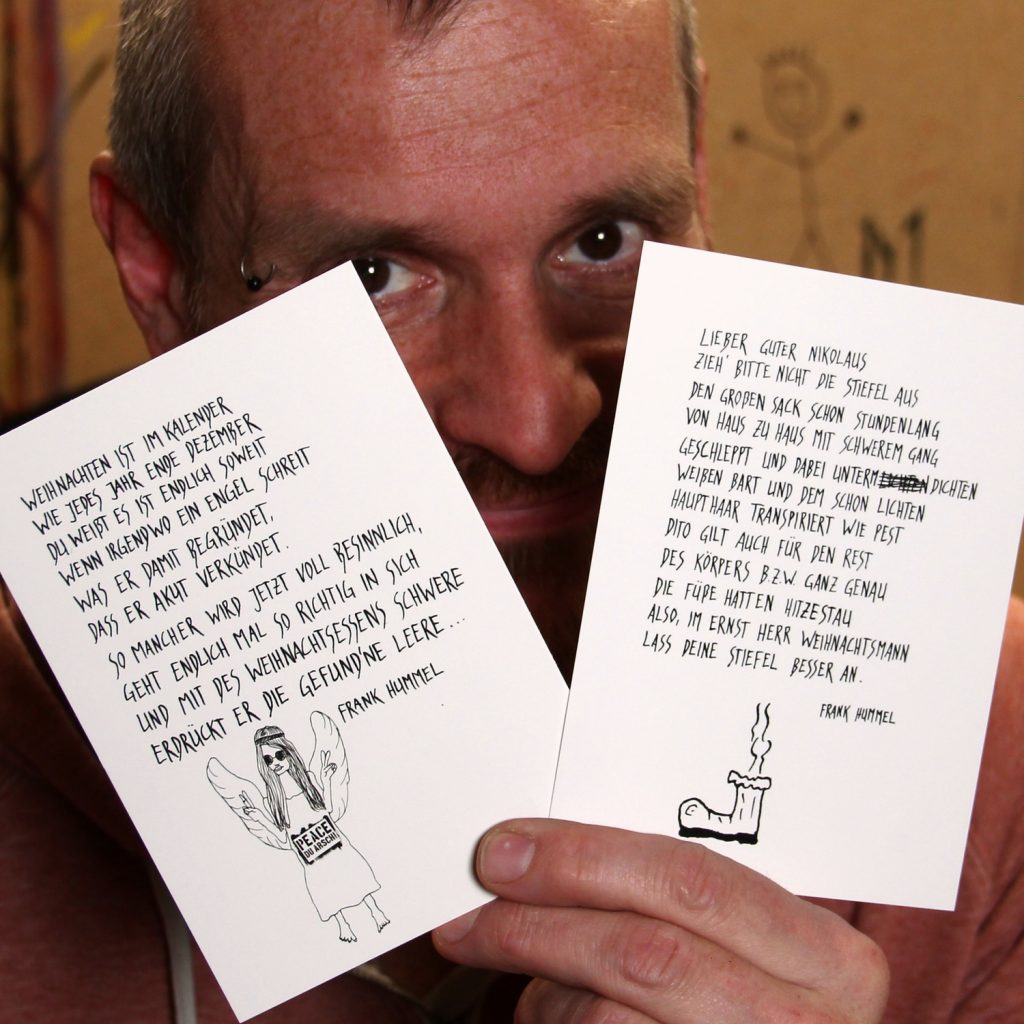 WEIHNACHTEN IST IM KALENDER
WIE JEDES JAHR ENDE DEZEMBER
DU WEIßT ES IST ENDLICH SOWEIT
WENN IRGENDWO EIN ENGEL SCHREIT
WAS ER DAMIT BEGRÜNDET,
DASS ER AKUT VERKÜNDET.
SO MANCHER WIRD JETZT VOLL BESINNLICH,
GEHT ENDLICH MAL SO RICHTIG IN SICH
UND MIT DES WEIHNACHTSESSENS SCHWERE
ERDRÜCKT ER DIE GEFUND'NE LEERE...
FRANK HUMMEL
PEACE
DU ARSCH!
LIEBER GUTER NIKOLAUS
ZIEH' BITTE NICHT DIE STIEFEL AUS
DEN GROßEN SACK SCHON STUNDENLANG
VON HAUS ZU HAUS MIT SCHWEREM GANG
GESCHLEPPT UND DABEI UNTERM DICHTEN
WEIßEN BART UND DEM SCHON LICHTEN
HAUPTHAAR TRANSPIRIERT WIE PEST
DITO GILT AUCH FÜR DEN REST
DES KÖRPERS B.Z.W. GANZ GENAU
DIE FÜßE HATTEN HITZESTAU
ALSO, IM ERNST HERR WEIHNACHTSMANN
LASS DEINE STIEFEL BESSER AN.
FRANK HUMMEL